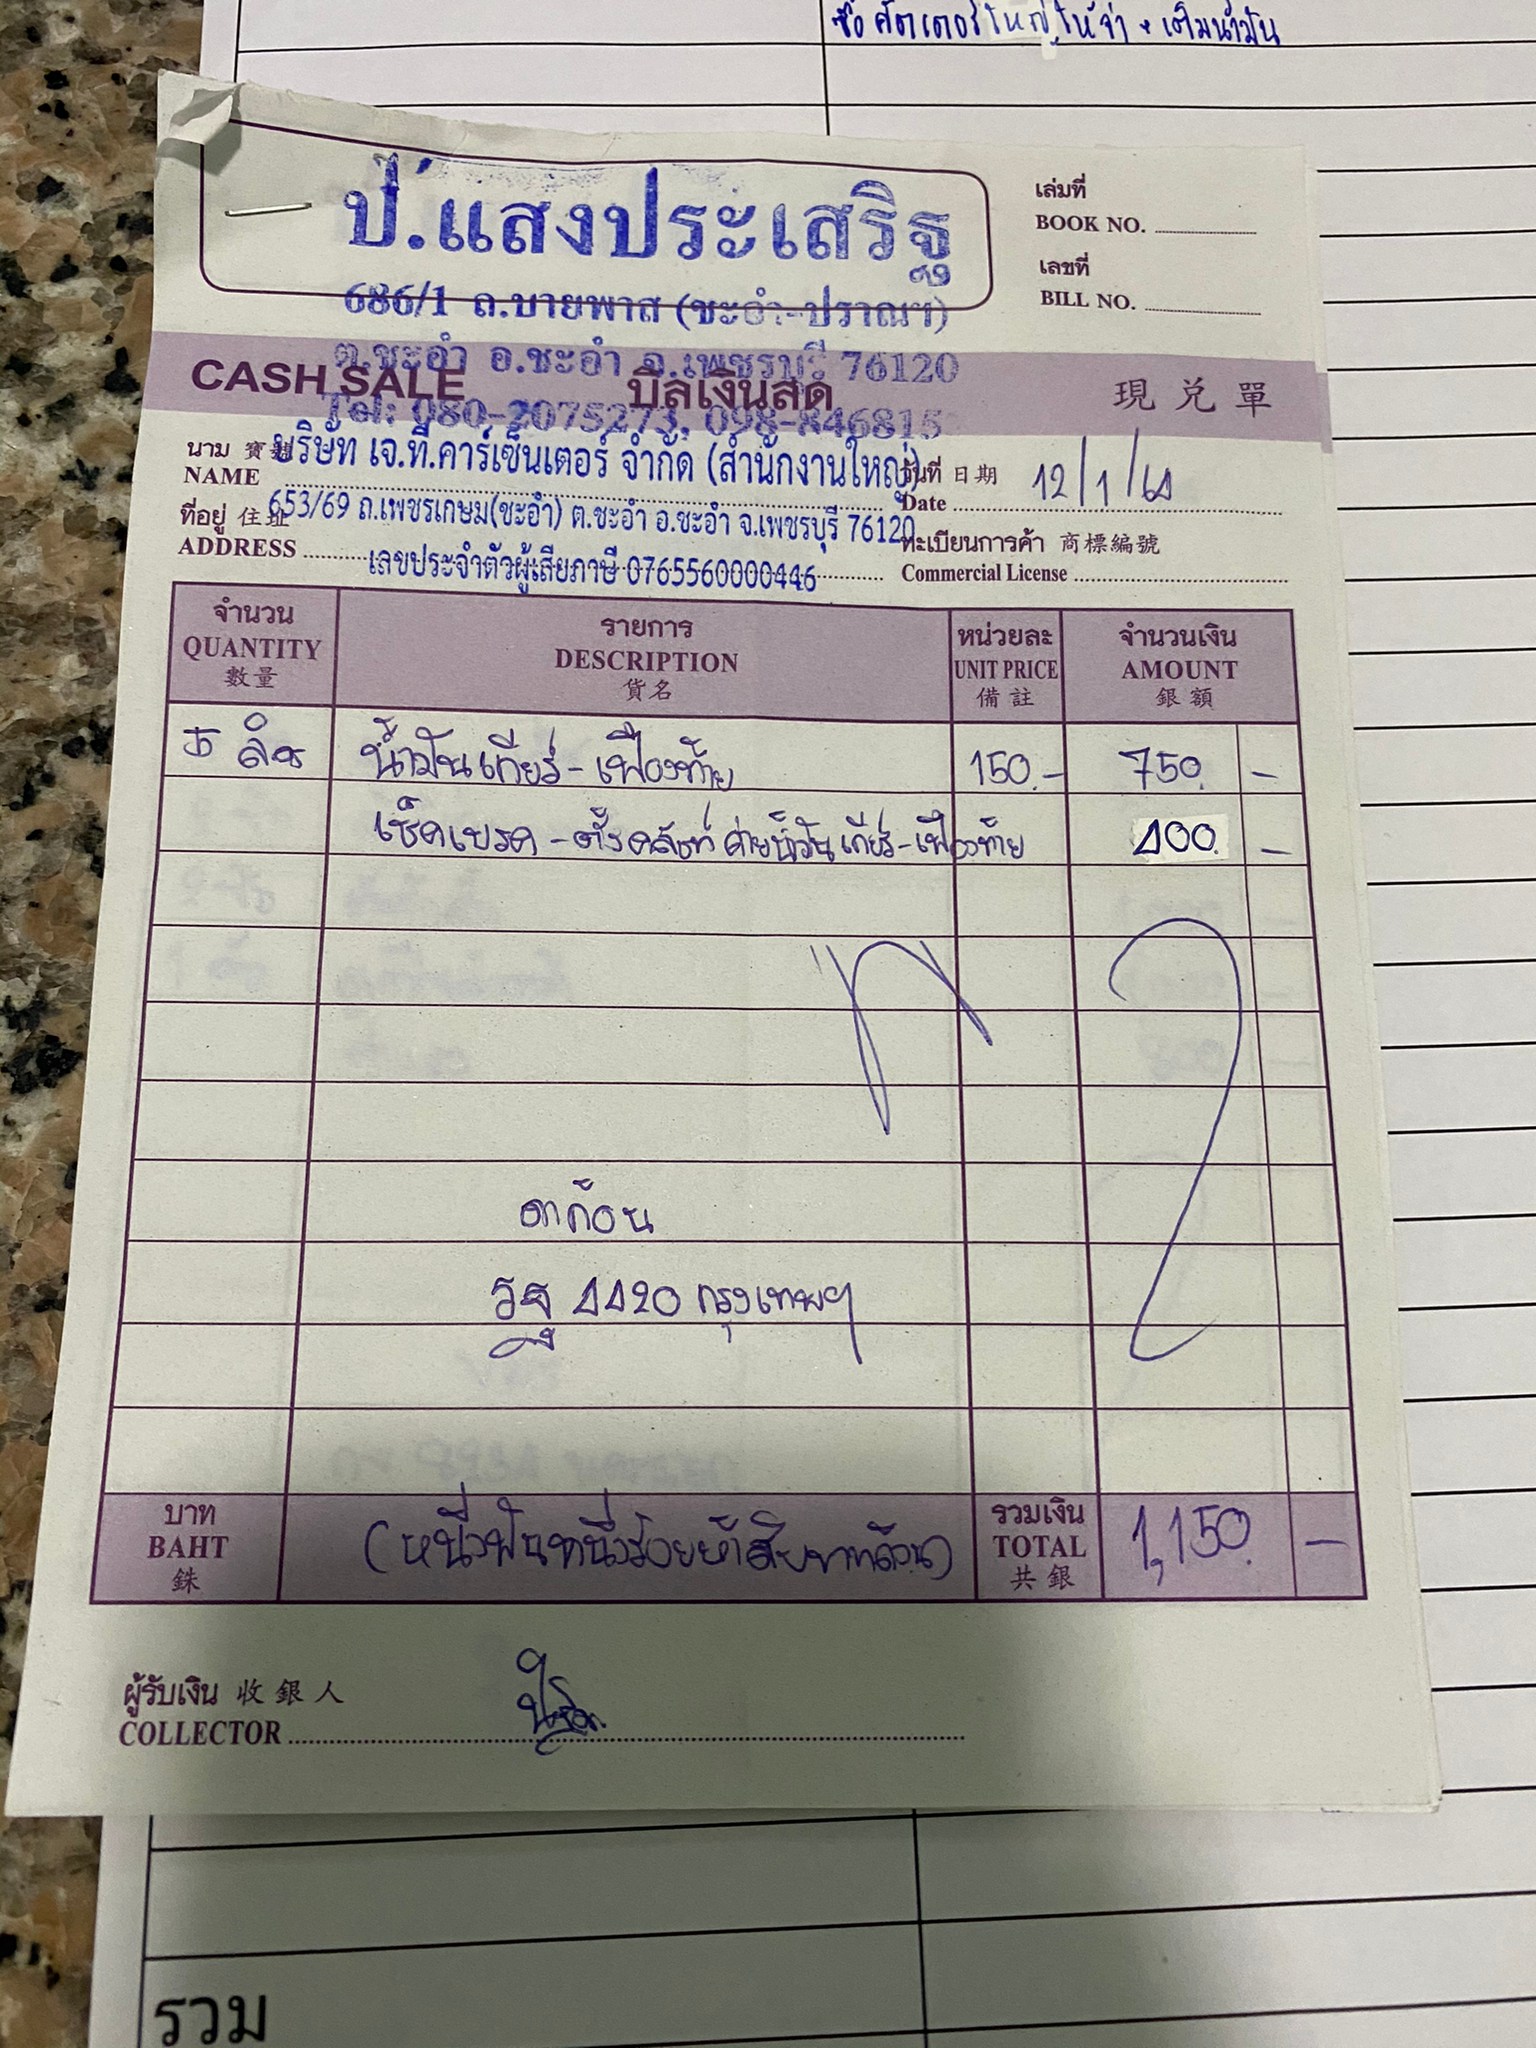 ซื้อ คัตเตอร์ใหญ่ให้จ่า + เติมน้ำมัน
ป.แสงประเสริฐ
686/1 ถ.บายพาส (ชะอำ-ปราณฯ)
ต.ชะอำ อ.ชะอำ จ.เพชรบุรี 76120
Tel: 080-2075273, 098-846815
เล่มที่
BOOK NO.
เลขที่
BILL NO.
CASH SALE บิลเงินสด 現兌單
นาม 寶號
NAME
บริษัท เจ.ที.คาร์เซ็นเตอร์ จำกัด (สำนักงานใหญ่)
วันที่ 日期
Date
12/1/64
ที่อยู่ 住址
ADDRESS
653/69 ถ.เพชรเกษม(ชะอำ) ต.ชะอำ อ.ชะอำ จ.เพชรบุรี 76120
เลขประจำตัวผู้เสียภาษี 0765560000446
ทะเบียนการค้า 商標編號
Commercial License
จำนวน รายการ หน่วยละ จำนวนเงิน
QUANTITY DESCRIPTION UNIT PRICE AMOUNT
數量 貨名 備註 銀額
5 ลิตร น้ำมันเกียร์-เฟืองท้าย 150.- 750. -
เช็คเบรค-ตั้งคลัชท์ ถ่ายน้ำมันเกียร์-เฟืองท้าย 400. -
ตาก้อน
รฐ 4420 กรุงเทพฯ
บาท
BAHT
銖
(หนึ่งพันหนึ่งร้อยห้าสิบบาทถ้วน)
รวมเงิน
TOTAL
共銀
1,150. -
ผู้รับเงิน 收銀人
COLLECTOR
รวม